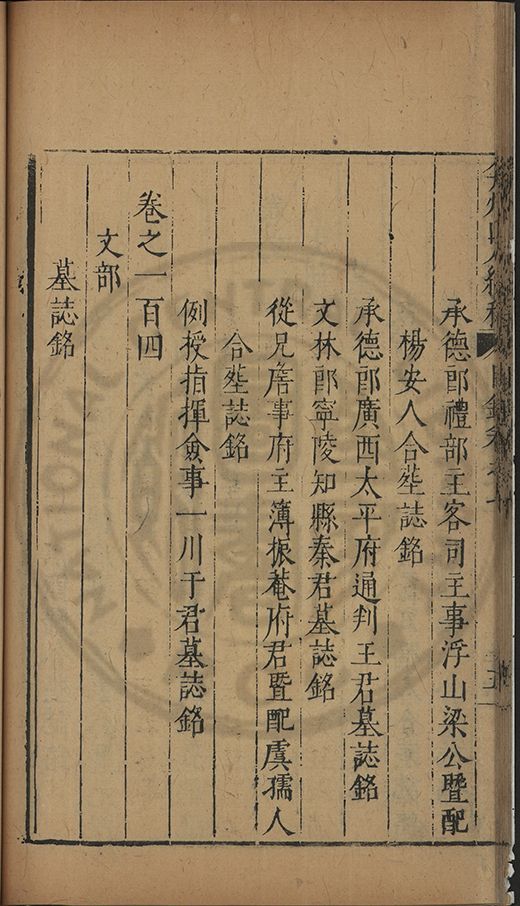 承德郎禮部主客司主事浮山梁公暨配
楊安人合塟誌銘
承德郎廣西太平府通判王君墓誌銘
文林郎寧陵知縣秦君墓誌銘
從兄詹事府主簿振菴府君暨配虞孺人
合塟誌銘
例授指揮僉事一川于君墓誌銘
卷之一百四
文部
墓誌銘